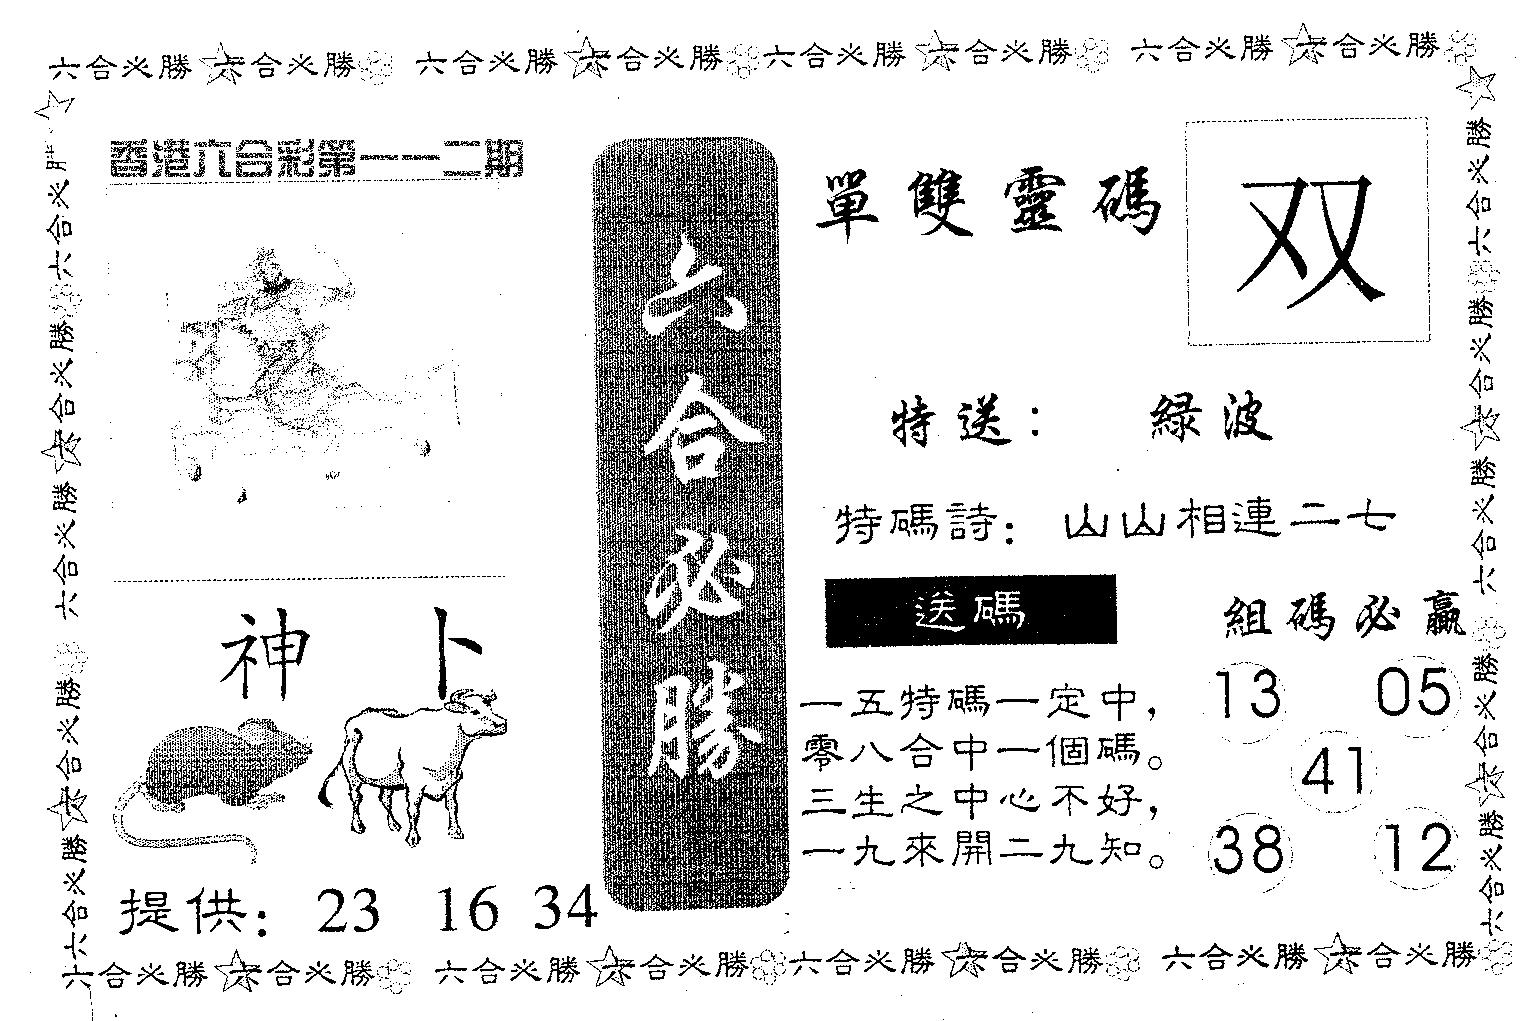 六合必勝 六合必勝 六合必勝 六合必勝 六合必勝 六合必勝 六合必勝 六合必勝
香港六合彩第一一二期
六合必勝
單雙靈碼
双
特送： 緑波
特碼詩： 山山相連二七
送碼
一五特碼一定中，
零八合中一個碼。
三生之中心不好，
一九來開二九知。
組碼必贏
13 05
41
38 12
神 卜
提供： 23 16 34
六合必勝 六合必勝 六合必勝 六合必勝 六合必勝
六合必勝 六合必勝 六合必勝 六合必勝 六合必勝
六合必勝 六合必勝 六合必勝 六合必勝 六合必勝 六合必勝 六合必勝 六合必勝